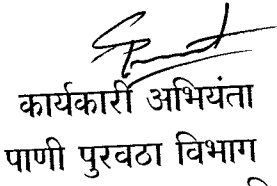 कार्यकारी अभियंता
पाणी पुरवठा विभाग